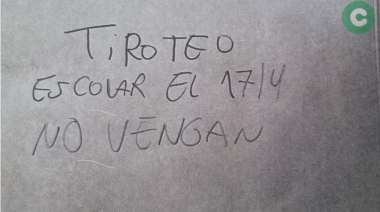 TiROTEO
ESCOLAR EL 17/4
NO VENGAN
C